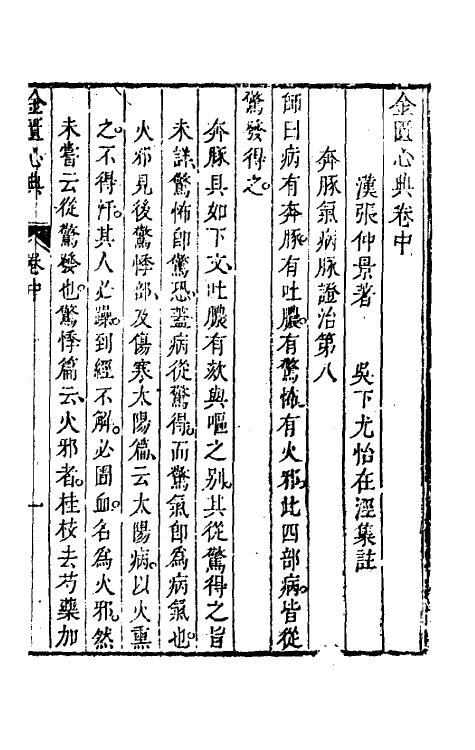 金匱心典卷中
漢張仲景著 吳下尤怡在涇集註
奔豚氣病脈證治第八
師曰病有奔豚有吐膿有驚怖有火邪此四部病皆從
驚發得之
奔豚具如下文吐膿有欬與嘔之别其從驚得之旨
未詳驚怖即驚恐蓋病從驚得而驚氣即為病氣也
火邪見後驚悸部及傷寒太陽篇云太陽病以火熏
之不得汗其人必躁到經不解必圊血名為火邪然
未嘗云從驚發也驚悸篇云火邪者桂枝去芍藥加
金匱心典 卷中 一